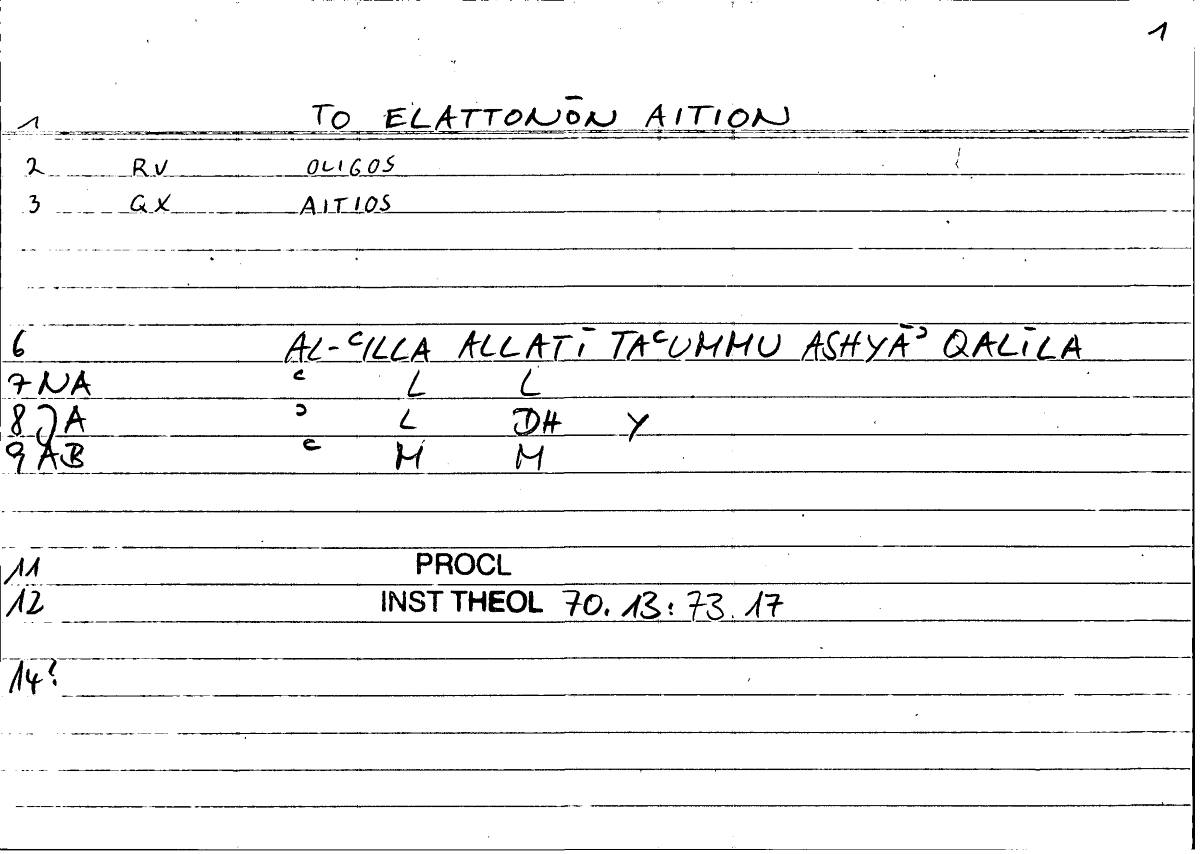 1
1 TO ELATTONŌN AITION
2 RV OLIGOS
3 QX AITIOS
6 AL-ʿILLA ALLATĪ TAʿUMMU ASHYĀʾ QALĪLA
7 NA ʿ L L
8 JA ʾ L DH Y
9 AB ʿ M M
11 PROCL
12 INST THEOL 70. 13: 73. 17
14: